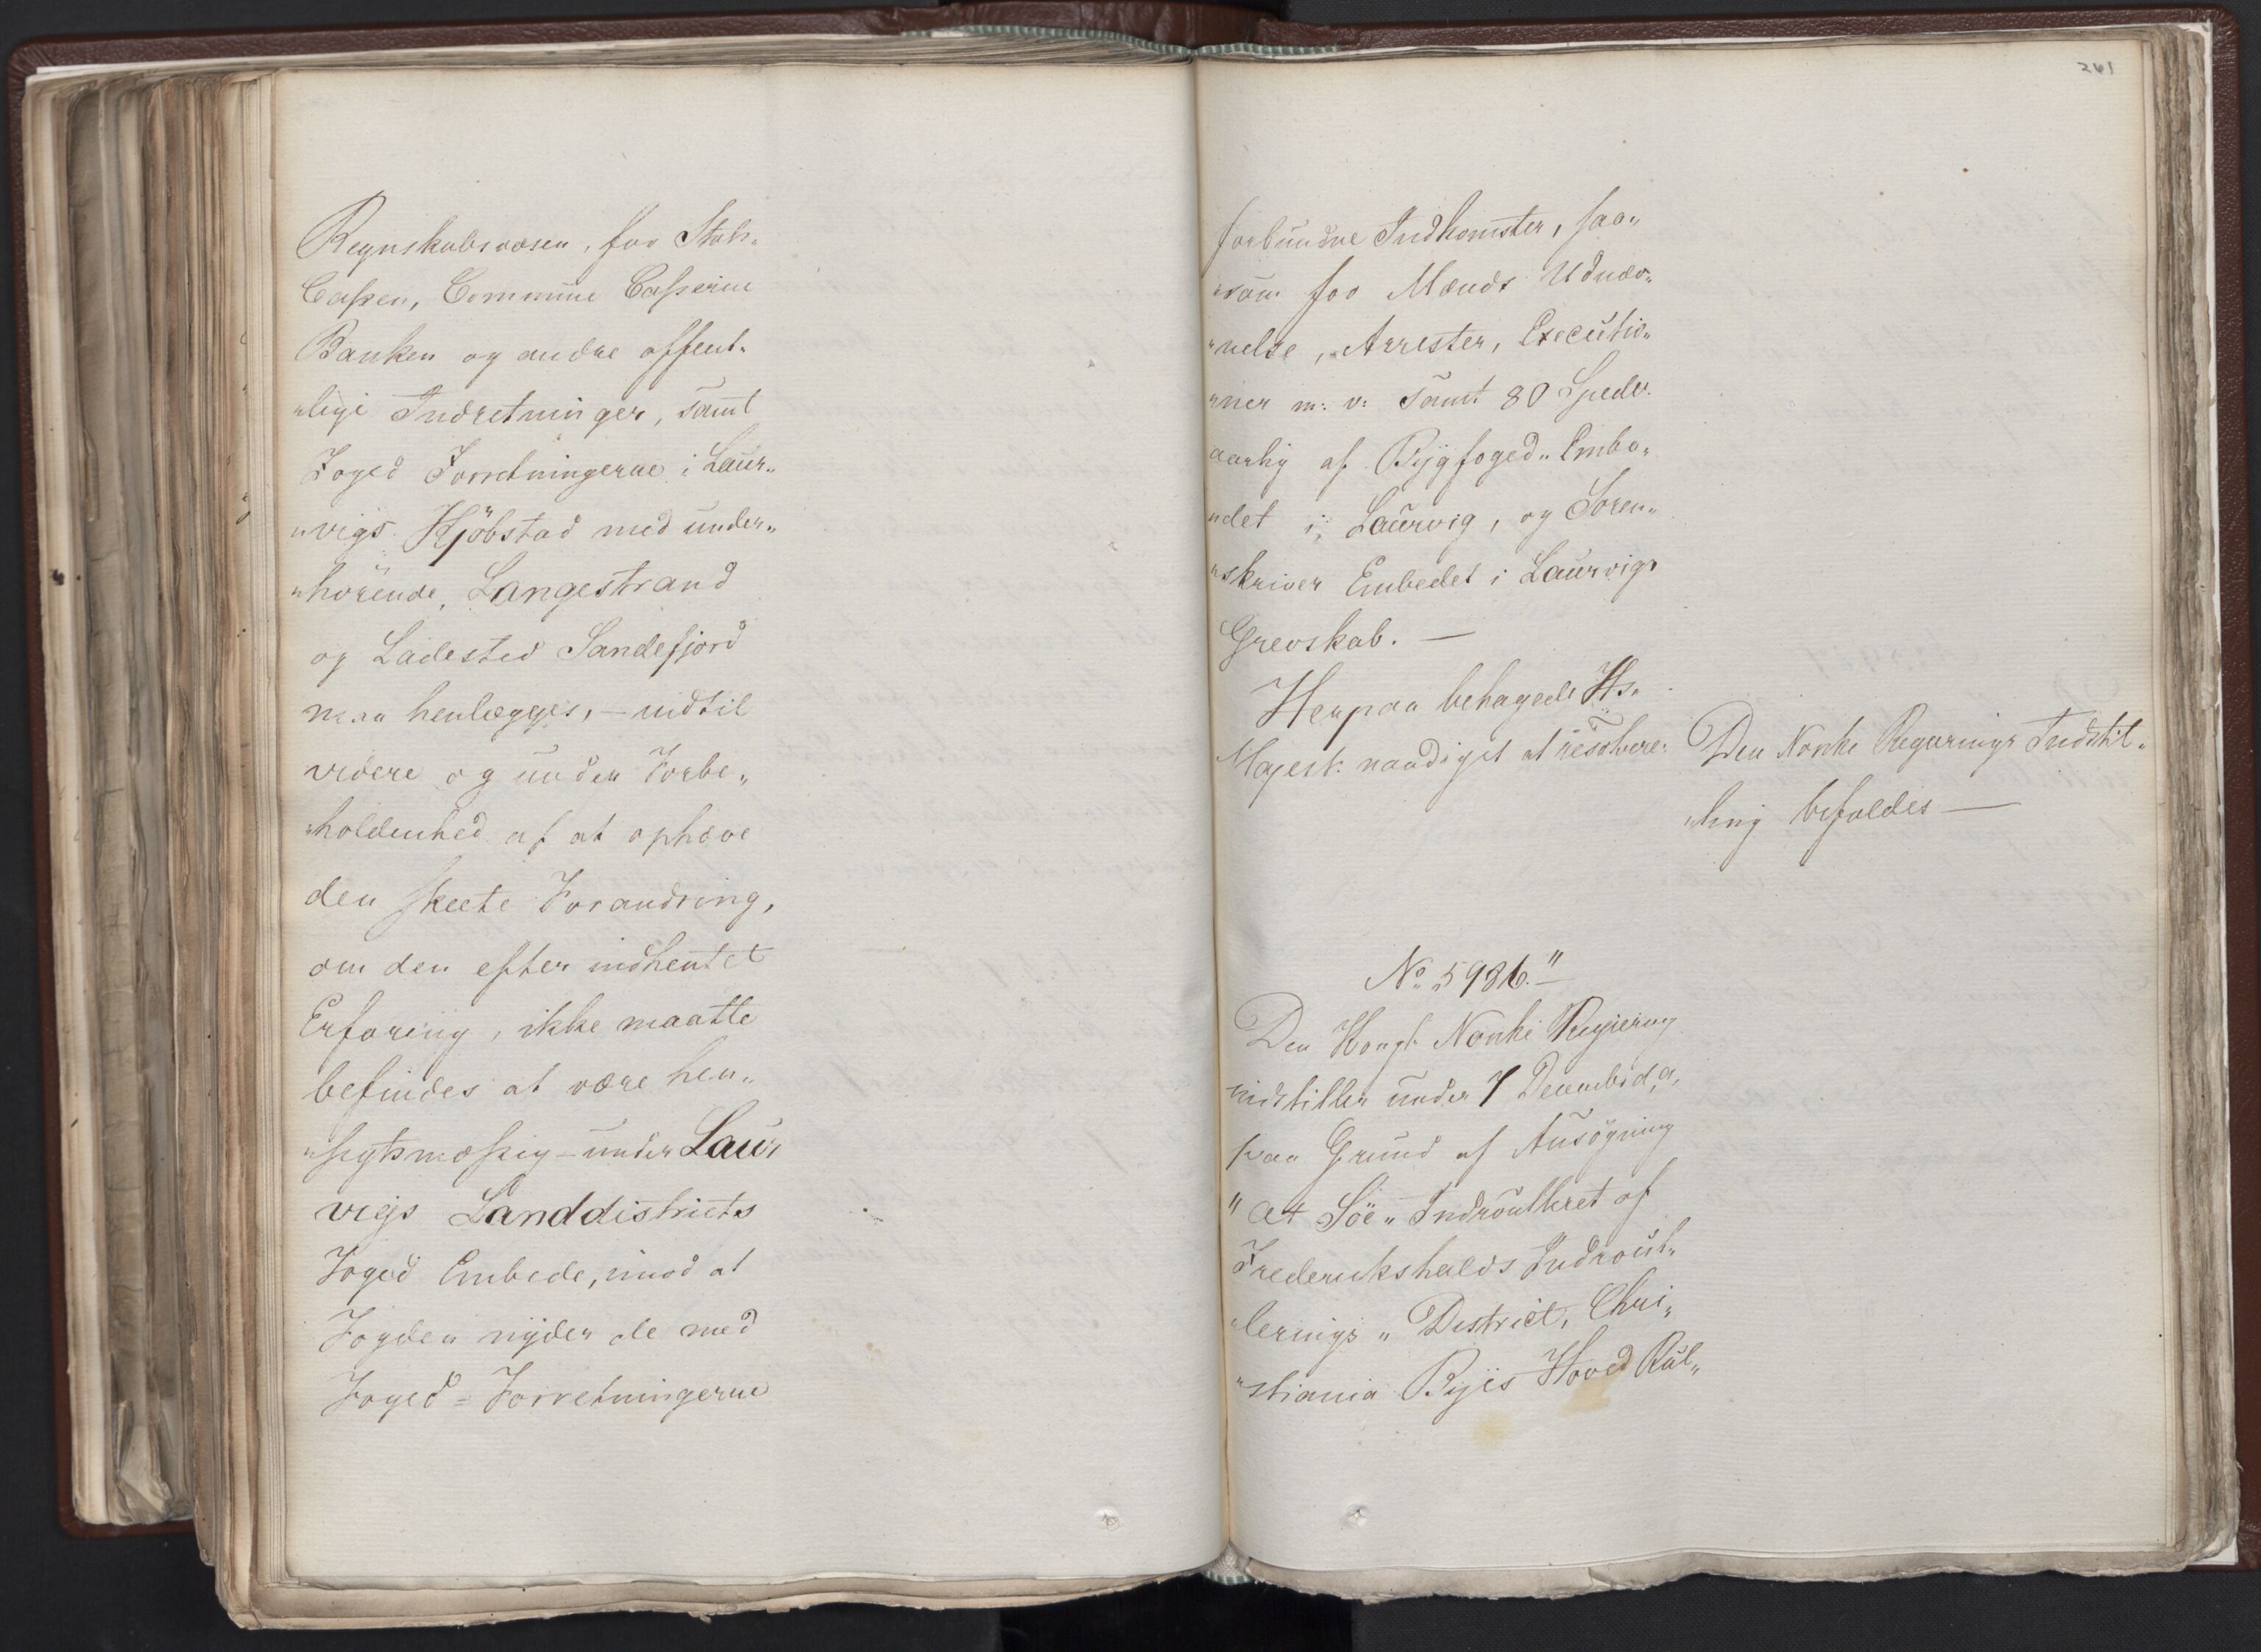 Regnskabsvæsen, for Stats„
Cassen, Commune Casserne
Banken og andre offent„
„lige Indretninger, samt
Foged Forretningerne i Laur„
„vigs Kjöbstad med under„
„hörende, Langestrand
og Ladested Sandefjord
maa henlægges, – indtil
videre og under Forbe„
„holdenhed af at ophæve
den skeete Forandring,
om den efter indhentet
Erfaring, ikke maatte
befindes at være hen„
„sigtsmæssig – under Laur
vigs Landdistricts
Foged Embede, imod at
Fogden nÿder de med
Foged = Forretningerne
261
forbundne Indkomster, saa„
„som for Mænds Udnæv„
„nelse, Arrester, Executio„
„ner m: v: samt 80 Spedlr.
aarlig af Bÿgfoged„ Embe„
„det i, Laurvig, og Soren„
„skriver Embedet i Laurvigs
Grevskab. —
Herpaa behagede Hs„
Majest: naadigst at resolvere:
Den Norske Regjerings Indstil„
„ling bifaldes —
No 5986."—
Den Kongl. Norske Regjering
indstiller under 7 December d.a.
paa Grund af Ansögning
" at Söe„ Indroulleret af
Frederikshalds Indroul„
„lerings „ District, Chri„
„stiania Bÿes Hoved Rul„